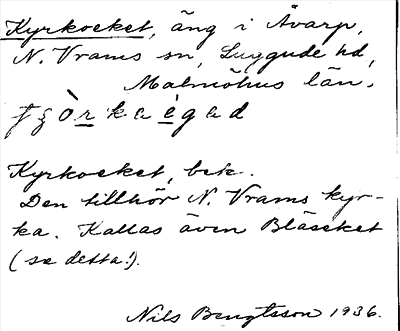 Kyrkoeket, äng i Åvarp,
N. Vrams sn, Luggude hd,
Malmöhus län.
Kyrkoeket, bek.
Den tillhör N. Vrams kyr-
ka. Kallas även Bläseket
(se detta!).
Nils Bengtsson 1936.